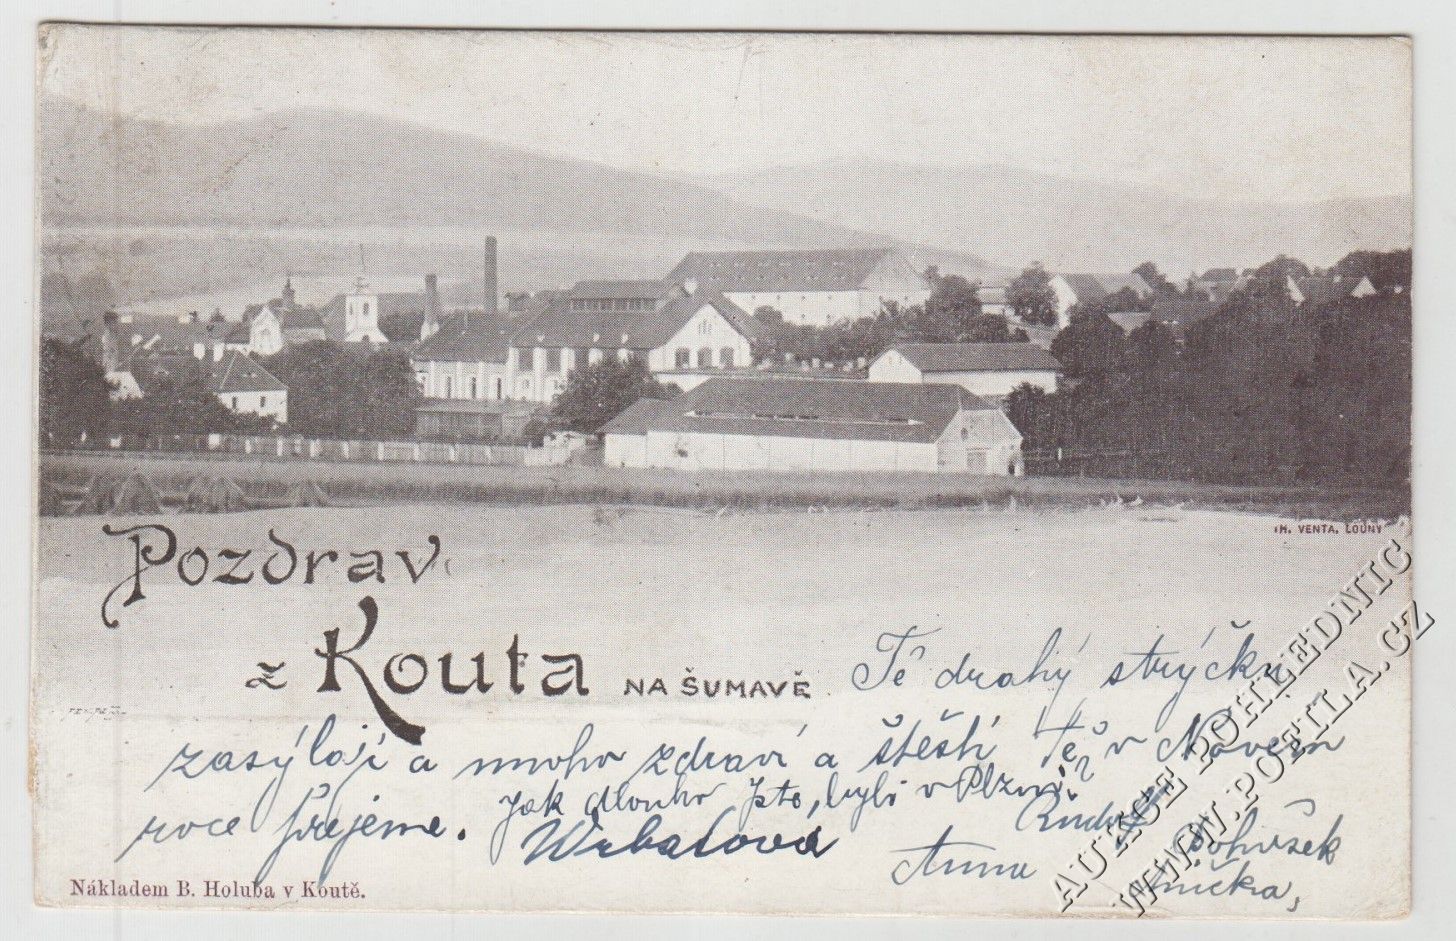 TH. VENTA, LOUNY
Pozdrav
z Kouta NA ŠUMAVĚ
Tě drahý strýčku
zasýlají a mnoho zdraví a štěstí Též v Novém
roce přejeme. Jak dlouho jste, byli v Plzni?
Vrbatová Rudolf
Anna Bohušek
Anička,
Nákladem B. Holuba v Koutě.
AUKCE POHLEDNIC
WWW.POFILA.CZ